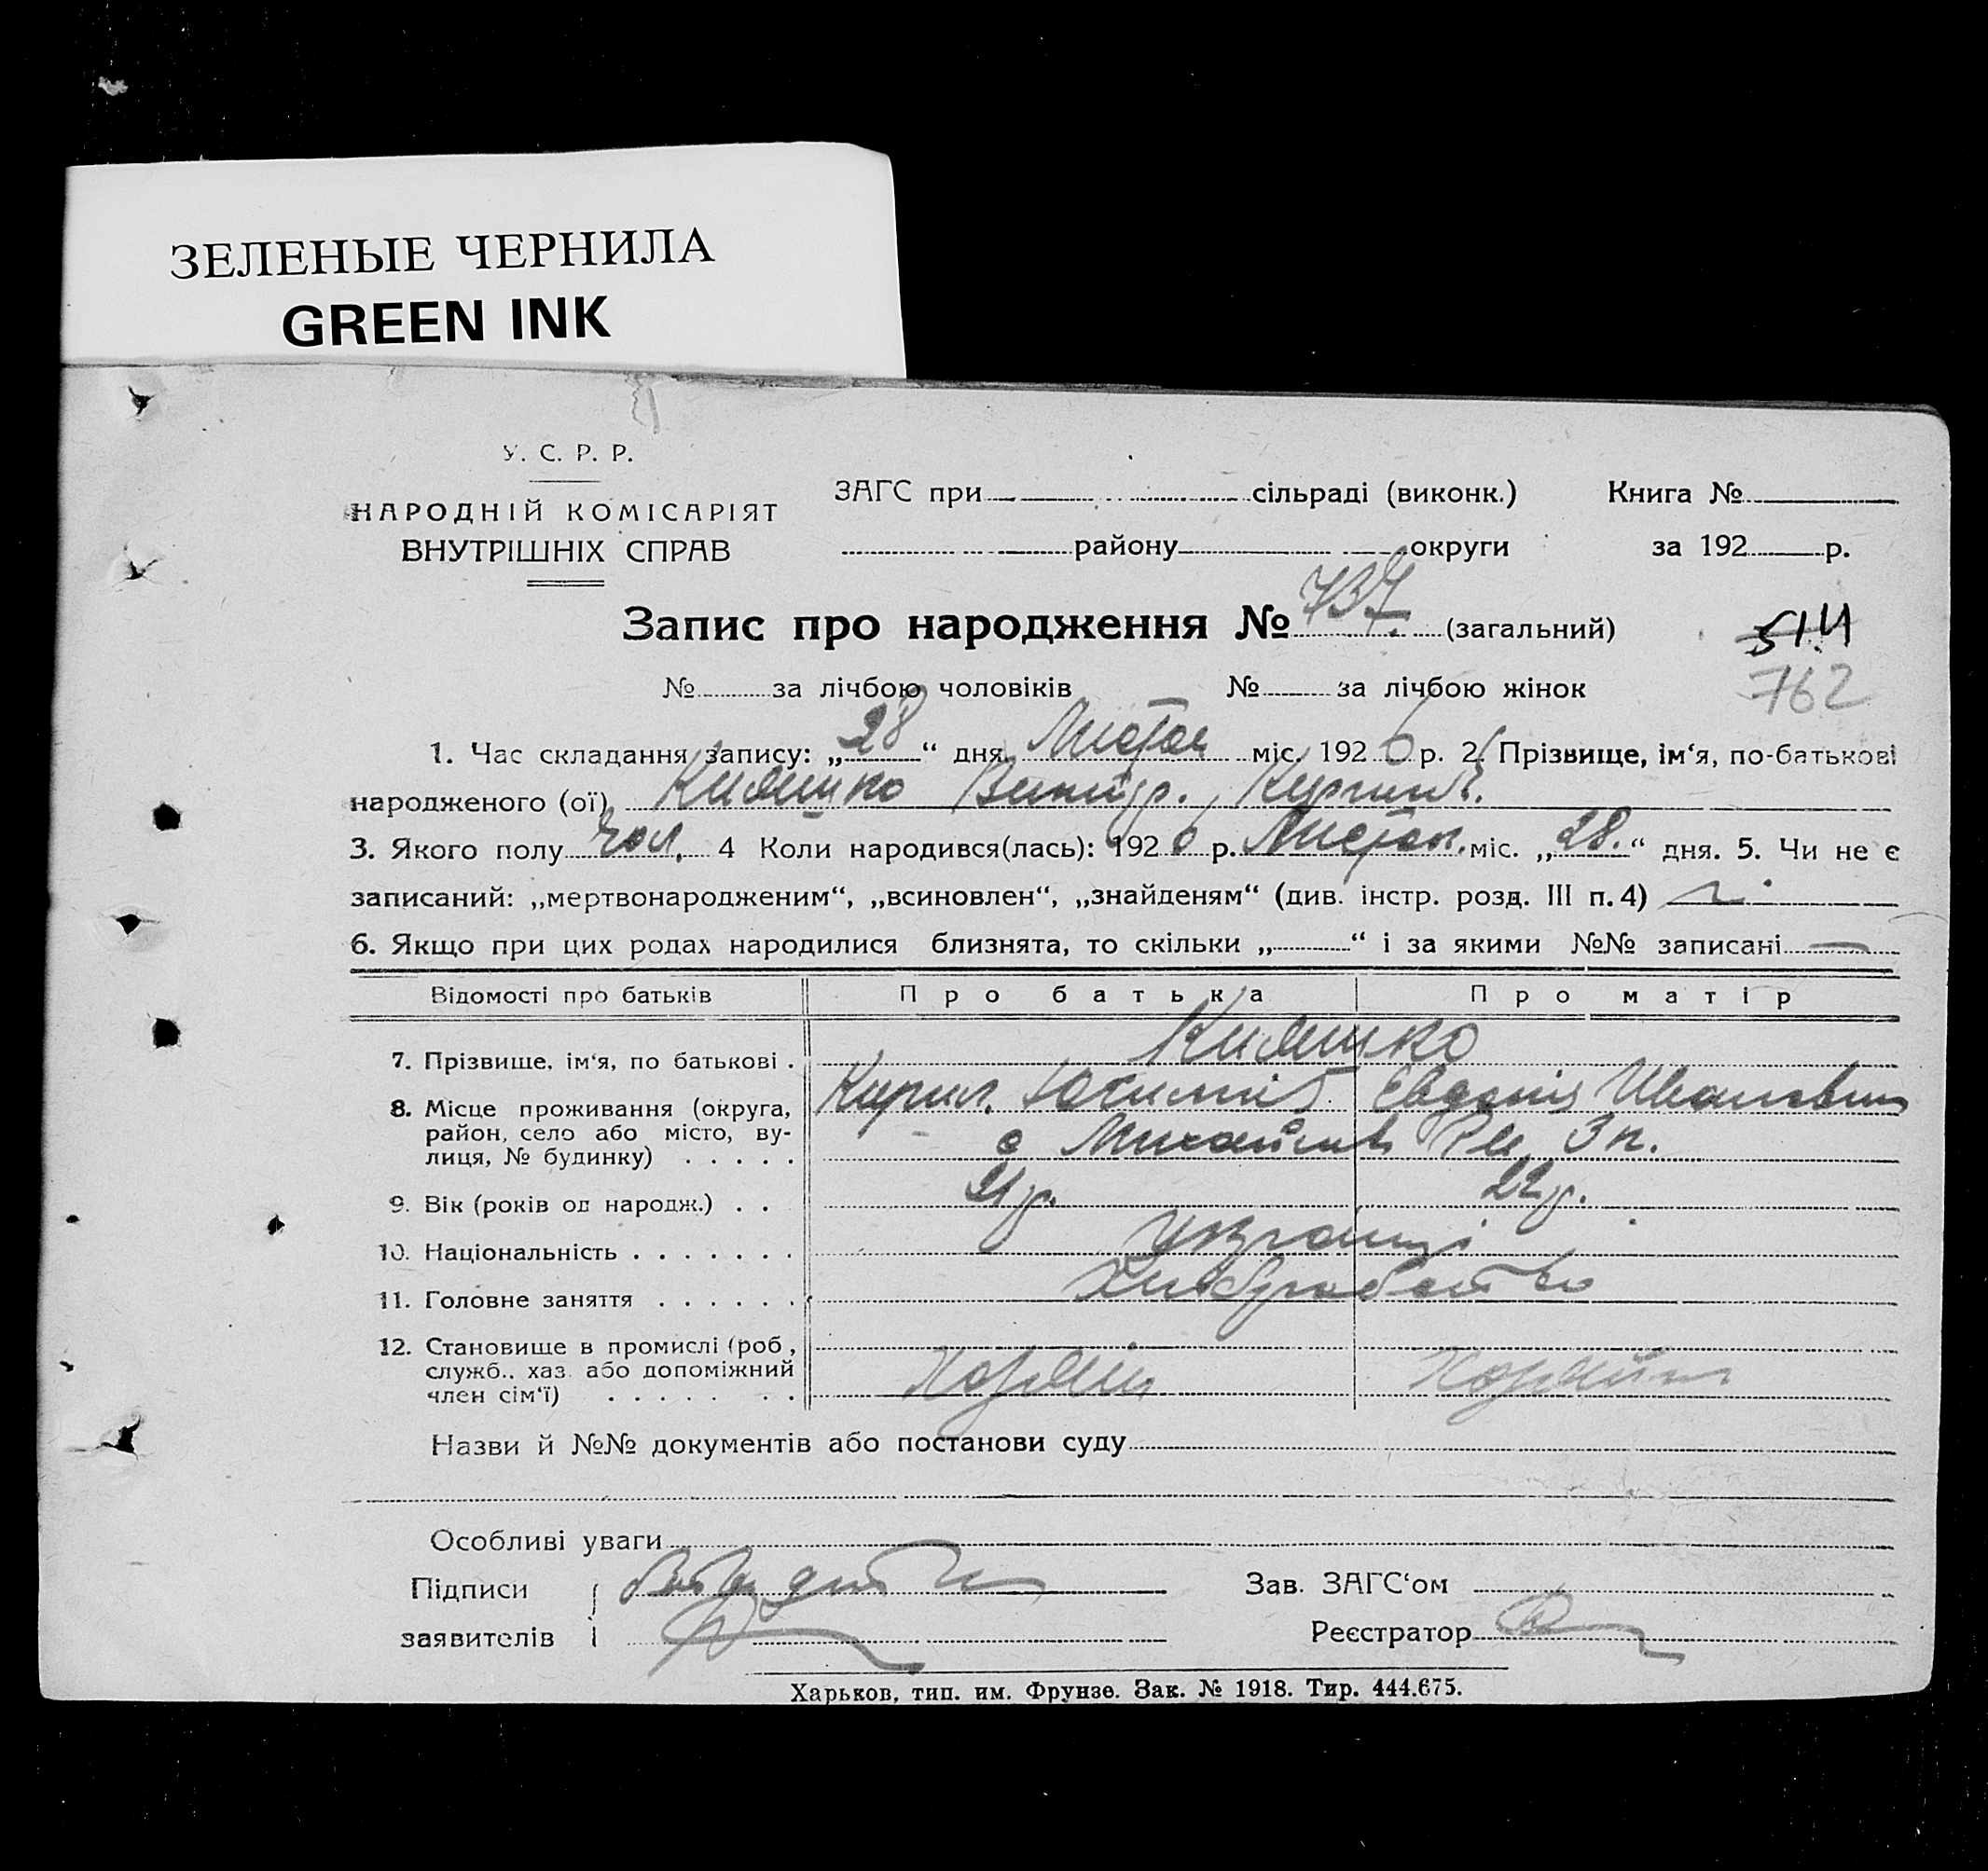 ЗЕЛЕНЫЕ ЧЕРНИЛА
GREEN INK
У. С. Р. Р.
НАРОДНІЙ КОМІСАРІЯТ
ВНУТРІШНІХ СПРАВ
ЗАГС при сільраді (виконк.)
району округи
Книга №
за 192 р.
Запис про народження № 737 (загальний)
514
762
№ за лічбою чоловіків № за лічбою жінок
1. Час складання запису: „28“ дня Листоп міс. 1926 р. 2. Прізвище, ім‘я, по-батькові
народженого (ої)
3. Якого полу чол. 4 Коли народився(лась): 1926 р. Листоп. міс. „28.“ дня. 5. Чи не є
записаний: „мертвонародженим“, „всиновлен“, „знайденям“ (див. інстр. розд. III п. 4) ні
6. Якщо при цих родах народилися близнята, то скільки „ “ і за якими №№ записані —
Відомості про батьків Про батька Про матір
7. Прізвище, ім‘я, по батькові .
Кирил. Юхимів Євдокія Ивановна
8. Місце проживання (округа,
район, село або місто, ву-
лиця, № будинку) . . . . .
с Михайлив
9. Вік (років од народж.) . . 21 р. 22 р.
10. Національність . . . . . . . Українці
11. Головне заняття . . . . . . Хліборобство
12. Становище в промислі (роб.,
служб., хаз. або допоміжний
член сім‘ї) . . . . . . .
Назви й №№ документів або постанови суду
Особливі уваги
Підписи
заявителів
Зав. ЗАГС‘ом
Реєстратор
Харьков, тип. им. Фрунзе. Зак. № 1918. Тир. 444.675.